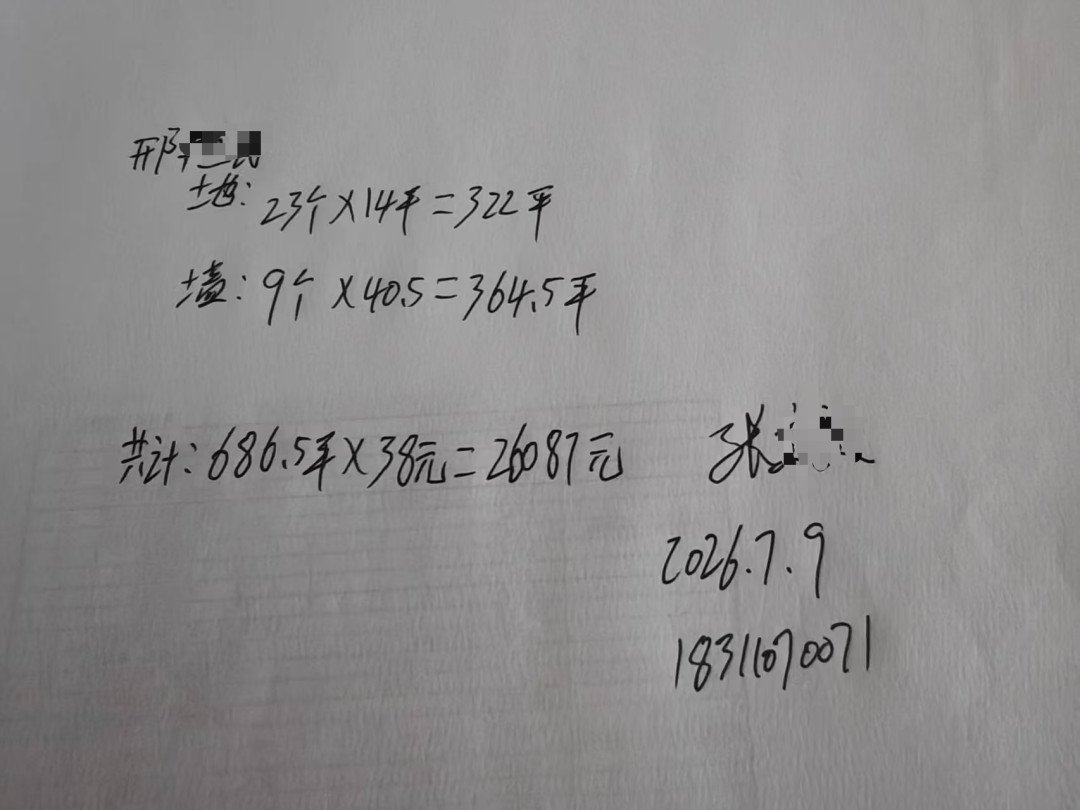 邢
地: 23个×14平=322平
墙: 9个×40.5=364.5平
共计: 686.5平×38元=26087元
张
2026.7.9
18311070071